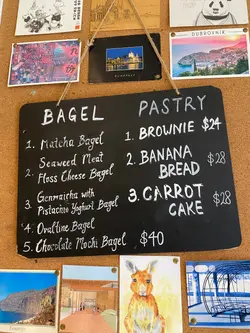 DUBROVNIK
BUDAPEST
BAGEL
1. Matcha Bagel
2. Seaweed Meat
Floss Cheese Bagel
3. Genmaicha with
Pistachio Yoghurt Bagel
4. Ovaltine Bagel
5. Chocolate Mochi Bagel $40
PASTRY
1. BROWNIE $24
2. BANANA $28
BREAD
3. CARROT $28
CAKE